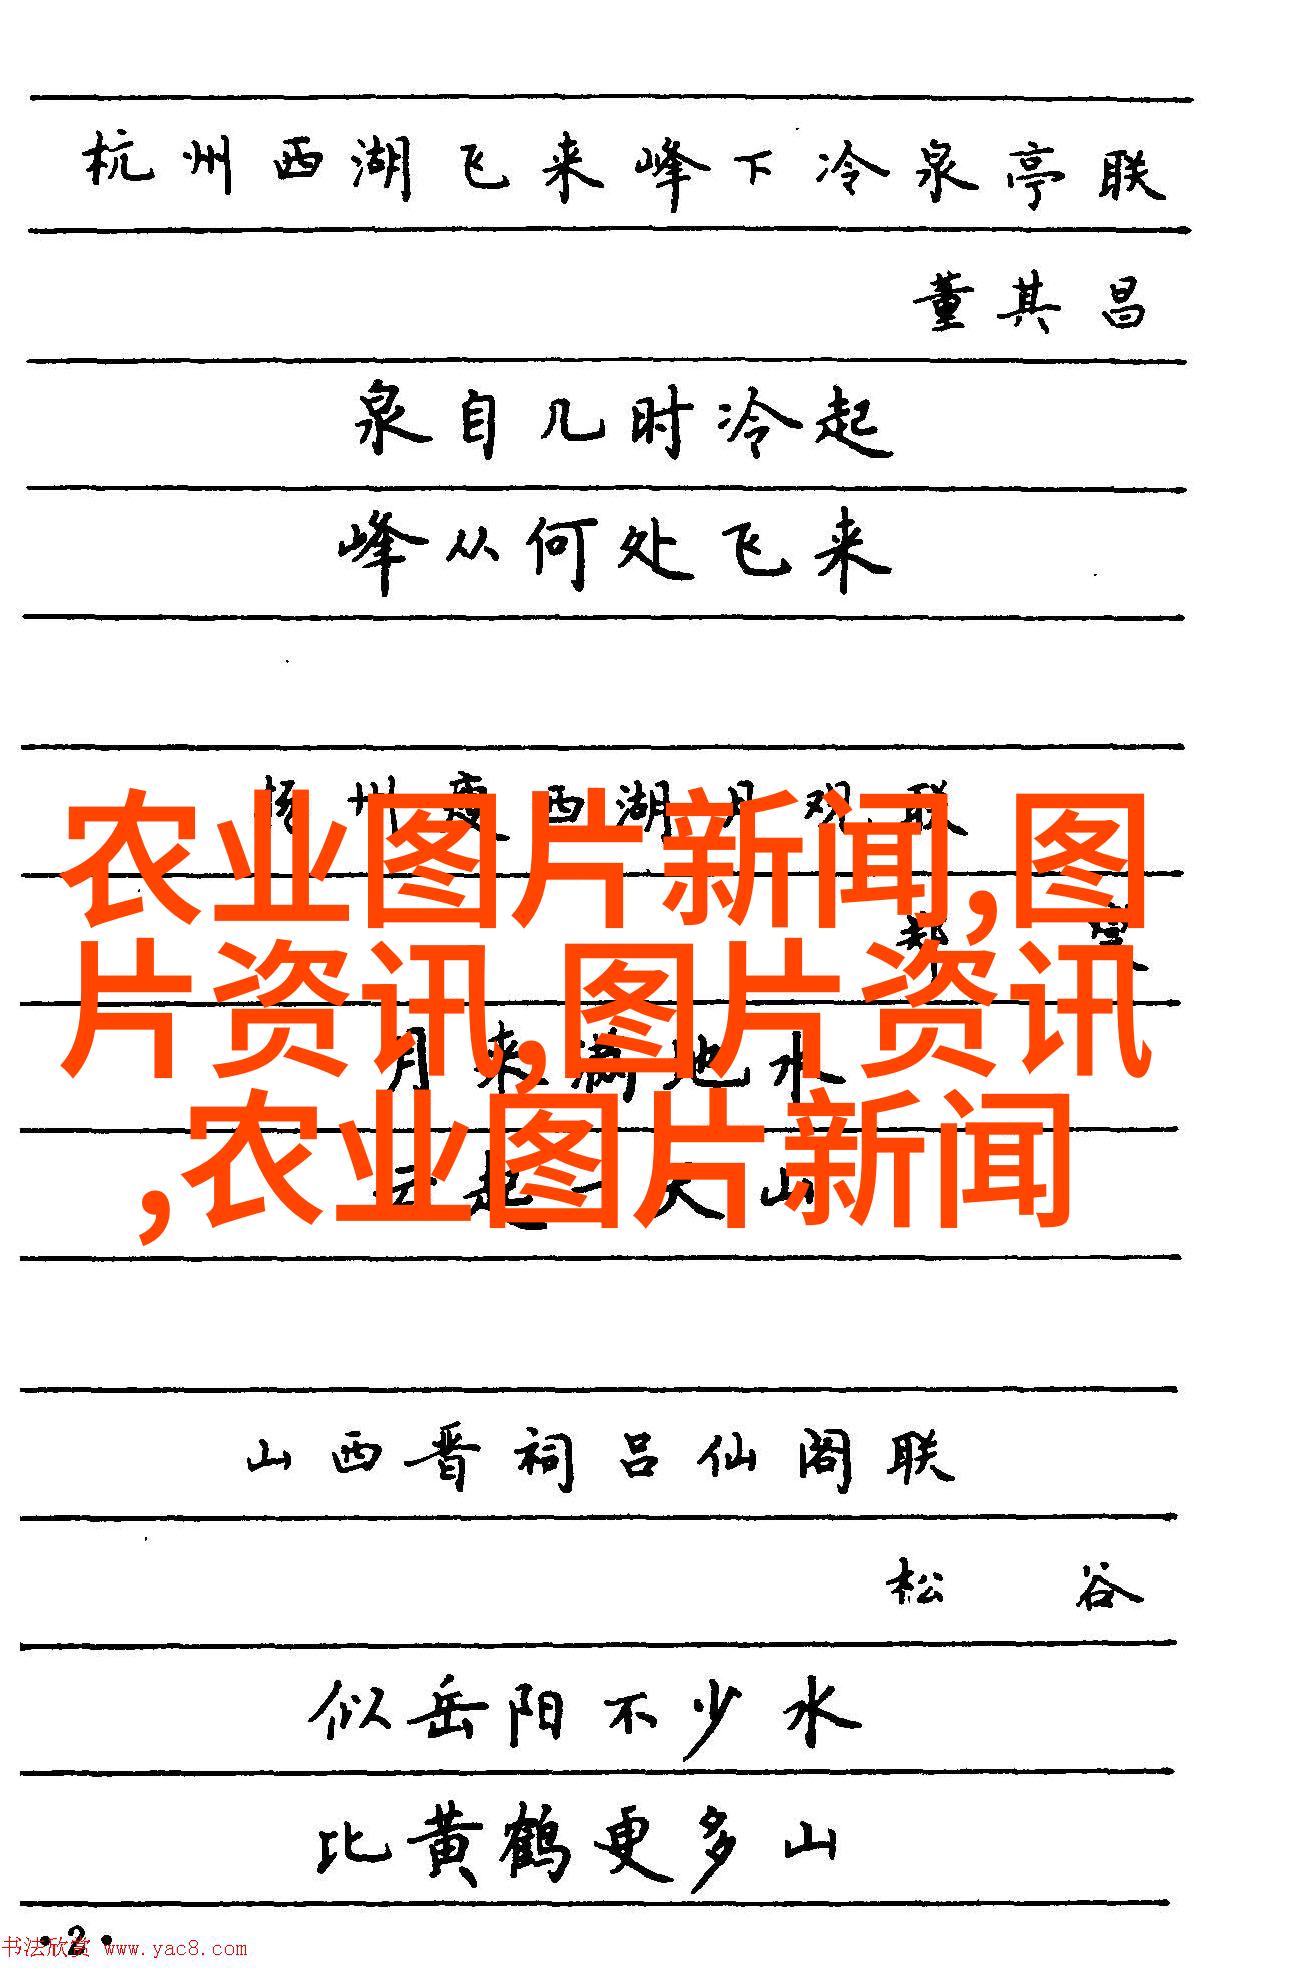 杭州西湖飞来峰下冷泉亭联
董其昌
泉自几时冷起
峰从何处飞来
州瘦西湖月观联
农业图片新闻,图
片资讯,图片资讯
月来满地水
,农业图片新闻
云起一天山
山西晋祠吕仙阁联
松谷
似岳阳不少水
比黄鹤更多山
·2·
书法欣赏 www.yac8.com